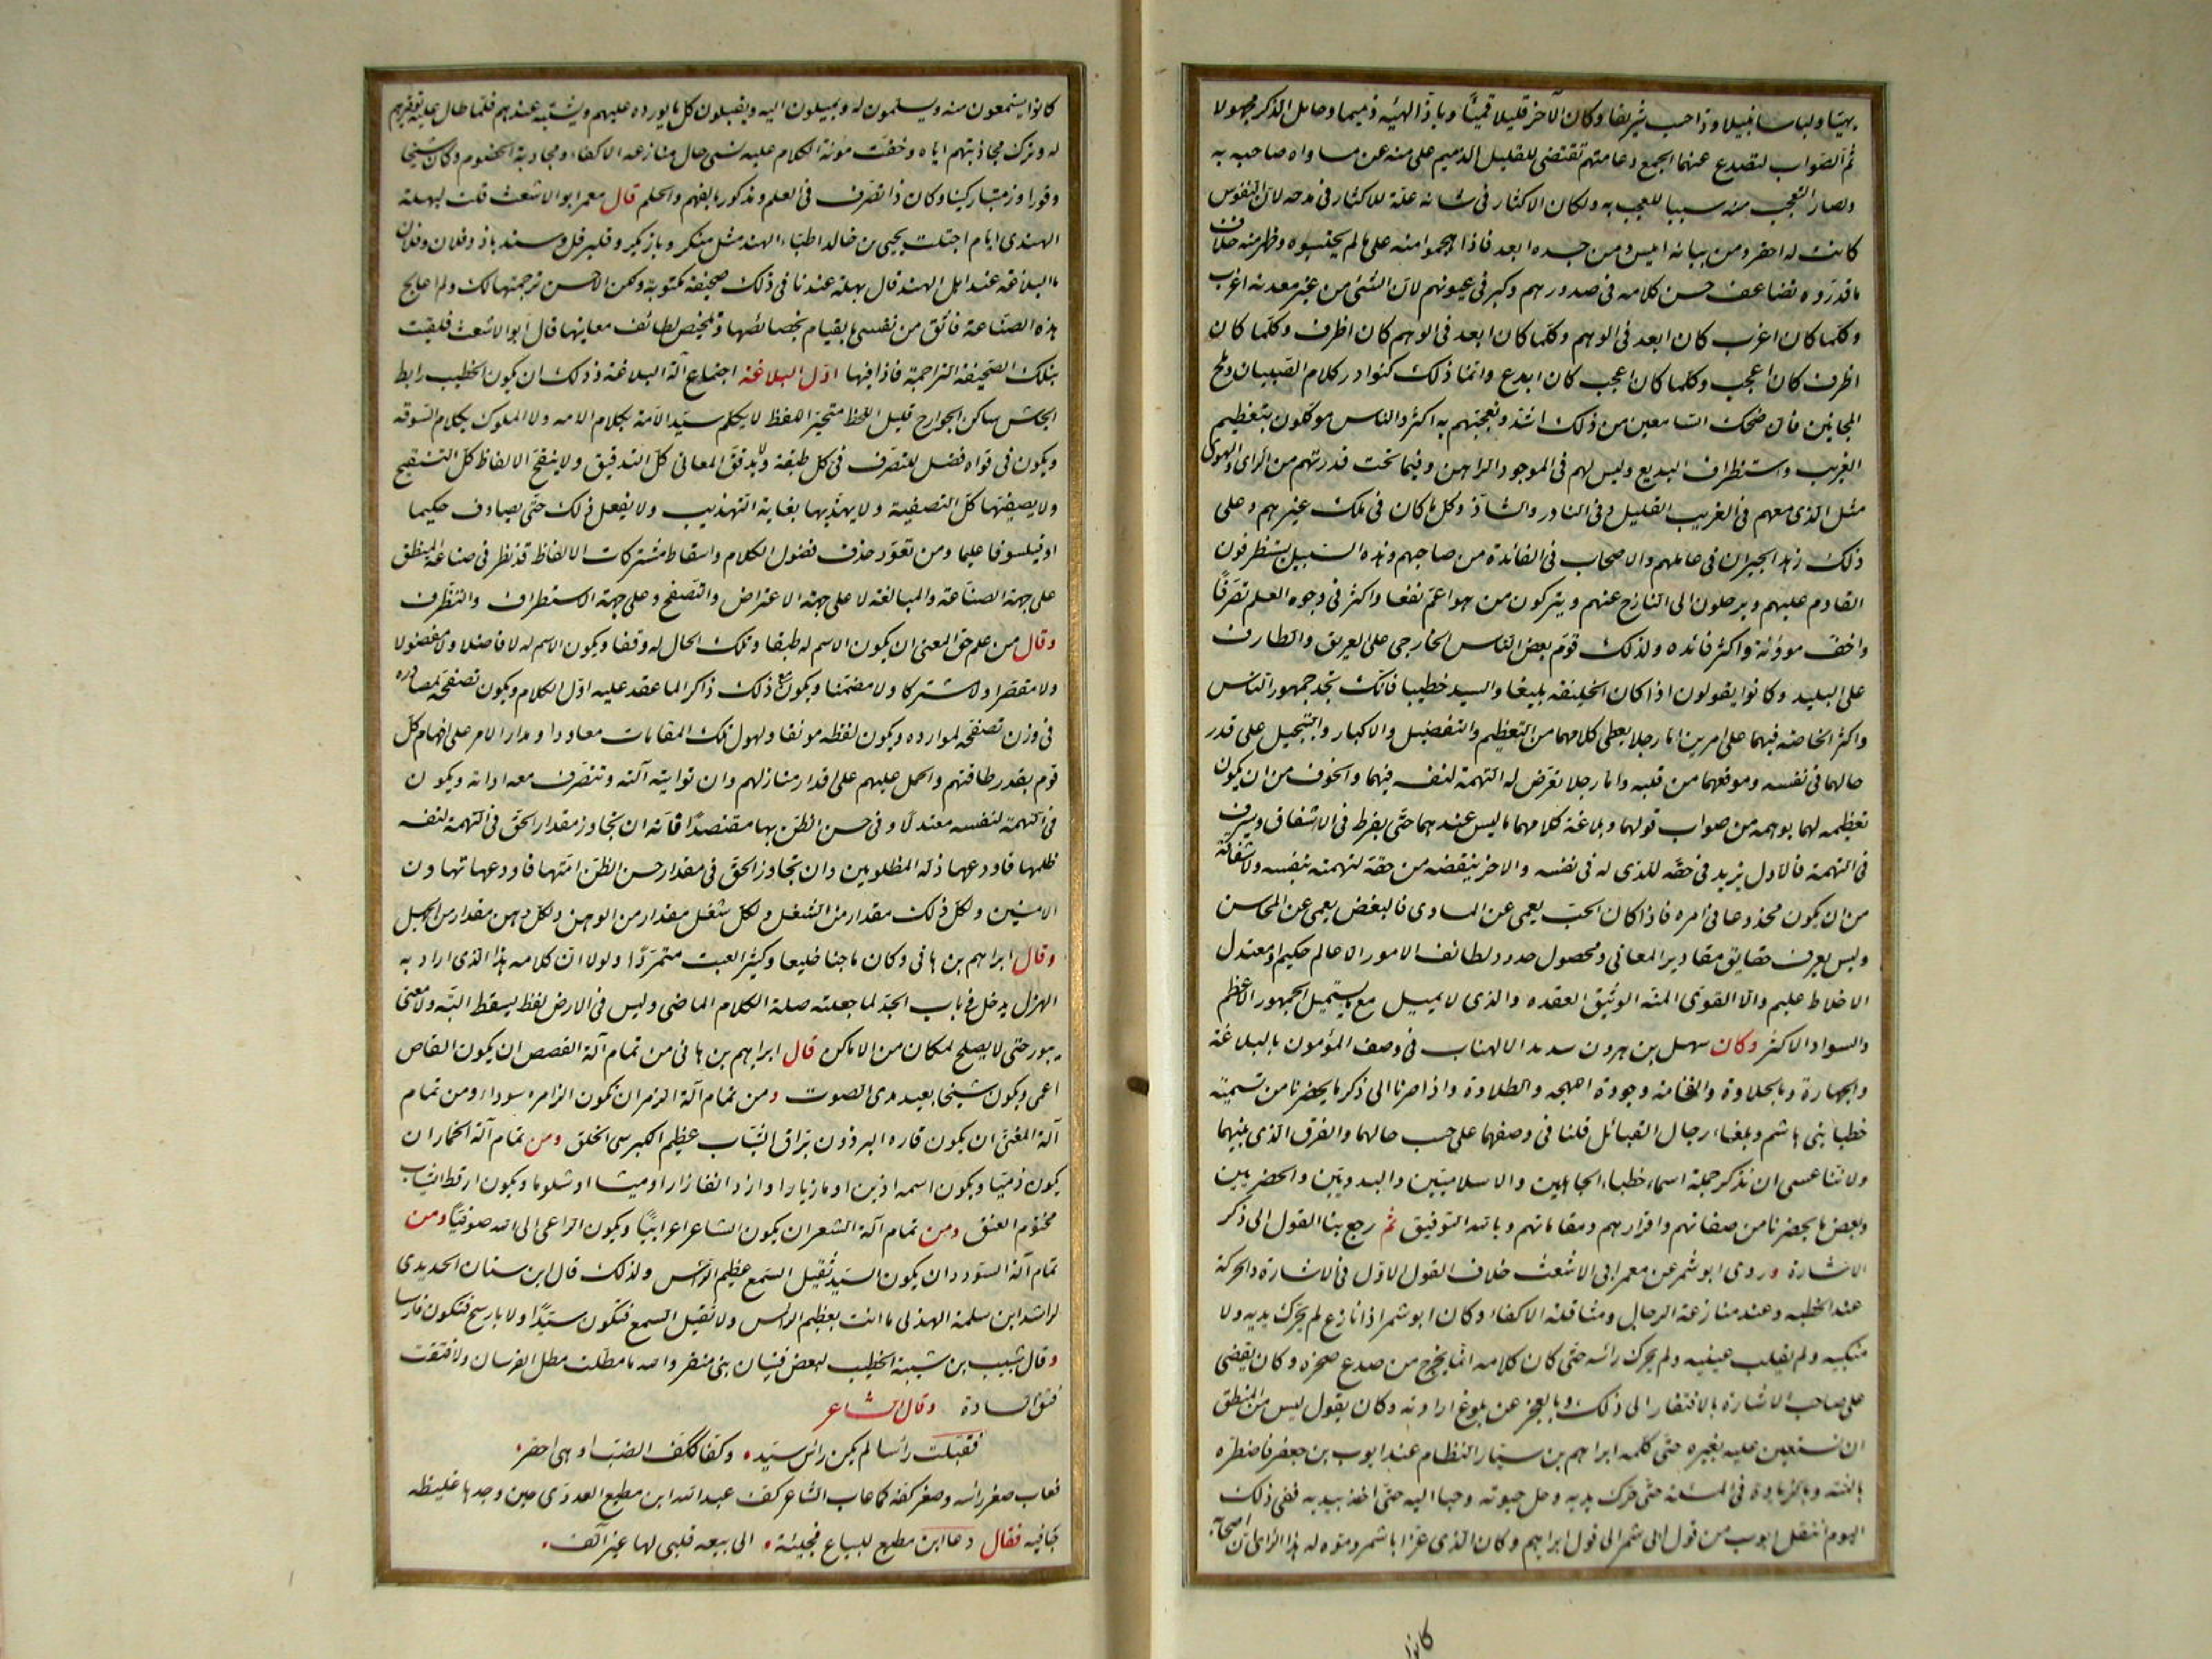 بهيّا ولباسا نبيلا وذا حسب شريفا وكان الآخر قليلا قميئًا وباذّ الهيئه ذميما وخامل الذكر مجهولا
ثم الصواب لتصدع عنهما الجمع وعامتهم تقتضى للقليل الذميم على منه عن مساواه صاحبه به
ولصار التعجب منه سببا للعجب به ولكان الاكثار فى شانه علّة للاكثار فى مدحه لان النفوس
كانت له احقر ومن بيانه ايس ومن حسده ابعد فاذا هجموا منه على مالم يحتسبوه وظهر منه خلاف
ما قدّروه تضاعف حسن كلامه فى صدورهم وكبر فى عيونهم لان الشئ من غير معدنه اغرب
وكلّما كان اغرب كان ابعد فى الوهم وكلّما كان ابعد فى الوهم كان اظرف وكلّما كان
اظرف كان اعجب وكلما كان اعجب كان ابدع وانما ذلك كنوادر كلام الصبيان وملح
المجانين فان ضحك السامعين من ذلك اشد وتعجبهم به اكثر والناس موكلون بتعظيم
الغريب واستظراف البديع وليس لهم فى الموجود الراهن وفيما تحت قدرتهم من الراى والهوى
مثل الذى معهم فى الغريب القليل وفى النادر والشاذ وكل ما كان فى ملك غيرهم وعلى
ذلك زهد الجيران فى عالمهم والاصحاب فى الفائدة من صاحبهم وهذه السبيل يستظرفون
القادم عليهم ويرحلون الى النازح عنهم ويتركون من هو اعمّ نفعا واكثر فى وجوه العلم تصرّفًا
واخف مؤونة واكثر فائده ولذلك قدّم بعض الناس الخارجى على العريق والطارف
على التليد وكانوا يقولون اذا كان الخليفه بليغا والسيد خطيبا فانك تجد جمهور الناس
واكثر الخاصه فيهما على امرين اما رجلا يعطى كلامهما من التعظيم والتفضيل والاكبار والتبجيل على قدر
حالهما فى نفسه وموقعهما من قلبه واما رجلا تعرّض له التهمة لنفسه فيهما والخوف من ان يكون
تعظيمه لهما يوهمه من صواب قولهما وبلاغة كلامهما ما ليس عندهما حتى يفرط فى الاشفاق ويسرف
فى التهمة فالاول يزيد فى حقّه للذى له فى نفسه والاخر ينقصه من حقّه لتهمته بنفسه ولاشفاقه
من ان يكون مخدوعا فى امره فاذا كان الحبّ يعمى عن المساوى فالبغض يعمى عن المحاسن
وليس يعرف حقايق مقادير المعانى ومحصول حدود لطائف الامور الا عالم حكيم او معتدل
الاخلاط عليم والا القوى المنّة الوثيق العقده والذى لا يميل مع ما يستميل الجمهور الاعظم
والسواد الاكثر وكان سهل بن هرون شديد الاطناب فى وصف المؤمون بالبلاغة
والجهارة وبالحلاوة والفخامة وجودة اللهجه والطلاوة واذا صرنا الى ذكر ما يحضرنا من تسمية
خطبا بنى هاشم وبلغاء رجال القبائل قلنا فى وصفهما على حسب حالهما والفرق الذى بينهما
ولاننا عسى ان نذكر جملة اسماء خطباء الجاهلين والاسلاميّين والبدويّين والحضريين
وبعض ما يحضرنا من صفاتهم واقدارهم ومقاماتهم وبالله التوفيق ثم رجع بنا القول الى ذكر
الاشارة وروى ابو شمر عن معمر ابى الاشعث خلاف القول الاول فى الاشارة والحركة
عند الخطبه وعند منازعة الرجال ومناقلة الاكفاء وكان ابو شمر اذا نازع لم يحرّك يديه ولا
منكبيه ولم يقلب عينيه ولم يحرك راسه حتى كان كلامه انما يخرج من صدع صخره وكان يقضى
على صاحب الاشارة بالافتقار الى ذلك وبالعجز عن بلوغ ارادته وكان يقول ليس من المنطق
ان تستعين عليه بغيره حتى كلّمه ابراهيم بن سيّار النظام عند ايوب بن جعفر فاضطره
بالحجّة وبالزيادة فى المسئلة حتى حرّك يديه وحل حبوته وحبا اليه حتى اخذ بيديه ففى ذلك
اليوم انتقل ايوب من قول ابى شمر الى قول ابراهيم وكان الذى غرّ ابا شمر وموّه له هذا الراى ان اصحابه
كانوا
كانوا يستمعون منه ويسلمون له ويميلون اليه ويقبلون كل ما يورده عليهم ويثبته عندهم فلما طال عليه توقيرهم
له وترك مجاذبتهم اياه وخفّت مؤنة الكلام عليه نسى حال منازعه الاكفاء ومجاذبة الخصوم وكان شيخا
وقورا وزمّيتا ركينا وكان ذا تصرّف فى العلم ومذكورا بالفهم والحلم قال معمر ابو الاشعث قلت لبهلة
الهندى ايام اجتلب يحيى بن خالد اطبّاء الهند مثل منكر وبازيكر وقلبرقل وسندباذ وفلان وفلان
ما البلاغة عند اهل الهند قال بهلة عندنا فى ذلك صحيفة مكتوبة ولكن لا احسن ترجمتها لك ولم اعالج
هذه الصناعة فاثق من نفسى بالقيام بخصائصها وتلخيص لطائف معاينها قال ابو الاشعث فلقيت
بتلك الصحيفة التراجمة فاذا فيها اوّل البلاغة اجتماع آلة البلاغة وذلك ان يكون الخطيب رابط
الجاش ساكن الجوارح قليل اللحظ متخيّر اللفظ لا يكلم سيّد الامة بكلام الامه ولا الملوك بكلام السّوقه
ويكون فى قواه فضل للتصرّف فى كل طبقة ولا يدقق المعانى كلّ التدقيق ولا ينقّح الالفاظ كلّ التنقيح
ولا يصفيّها كلّ التصفية ولا يهذّبها بغاية التهذيب ولا يفعل ذلك حتى يصادف حكيما
او فيلسوفا عليما ومن تعوّد حذف فضول الكلام واسقاط مشتركات الالفاظ قد نظر فى صناعة المنطق
على جهة الصناعة والمبالغة لا على جهة الاعتراض والتصفح وعلى جهة الاستطراف والتظرف
وقال من علم حق المعنى ان يكون الاسم له طبقا وتلك الحال له وفقا ويكون الاسم له لا فاضلا ولا مفضولا
ولا مقصّرا ولا مشتركا ولا مضمّنا ويكون مع ذلك ذاكرا لما عقد عليه اوّل الكلام ويكون تصفحّه لمصادره
فى وزن تصفحّه لموارده ويكون لفظه مونقا ولهول تلك المقامات معاودا ومدار الامر على افهام كل
قوم بقدر طاقتهم والحمل عليهم على اقدار منازلهم وان تواتيه آلته وتتصرّف معه اداته ويكون
فى التهمة لنفسه معتدلًا وفى حسن الظن بها مقتصدًا فانه ان تجاوز مقدار الحق فى التهمة لنفسه
ظلمها فاودعها ذلّة المظلومين وان تجاوز الحق فى مقدار حسن الظن امّنها فاودعها تهاون
الامنين ولكل ذلك مقدار من الشغل ولكل شغل مقدار من الوهن ولكل وهن مقدار من الجهل
وقال ابراهيم بن هانى وكان ماجنا خليعا وكثير العبث متمرّدًا ولولا ان كلامه هذا الذى اراد به
الهزل يدخل فى باب الجدّ لما جعلته صلة الكلام الماضى وليس فى الارض لفظ يسقط البتّه ولا معنى
يبور حتى لا يصلح لمكان من الاماكن قال ابراهيم بن هانى من تمام آلة القصص ان يكون القاص
اعمى ويكون شيخا بعيد مدى الصوت ومن تمام آلة الزمر ان تكون الزامره سوداء ومن تمام
آلة المغنى ان يكون فاره البرذون برّاق الثياب عظيم الكبر سى الخلق ومن تمام آلة الخمّار ان
يكون ذميّا ويكون اسمه اذين او مازيار او ازدانقاذار او ميشا او شلوما ويكون ارقط الثياب
مختوم العنق ومن تمام آلة الشعر ان يكون الشاعر اعرابيّا ويكون الداعى الى الله صوفيّا ومن
تمام آلة السؤدد ان يكون السيّد ثقيل السمع عظيم الراس ولذلك قال ابن سنان الجديدى
لراشد ابن سلمة الهذلى ما انت بعظيم الراس ولا ثقيل السمع فتكون سيّدًا ولا بارسح فتكون فارسا
وقال شبيب بن شيبة الخطيب لبعض فتيان بنى منقر والله ما مطلت مطل الفرسان ولا فتقت
فتق السادة وقال الشاعر
فقبّلت راسا لم يكن راس سيّد ۰ وكفا ككف الضب او هى احقر ۰
فعاب صغر راسه وصغر كفه كما عاب الشاعر كف عبد الله ابن مطيع العدوى حين وجدها غليظه
جافيه فقال دعا ابن مطيع للبياع فجيئته ۰ الى بيعه قلبى لها غير آلف ۰